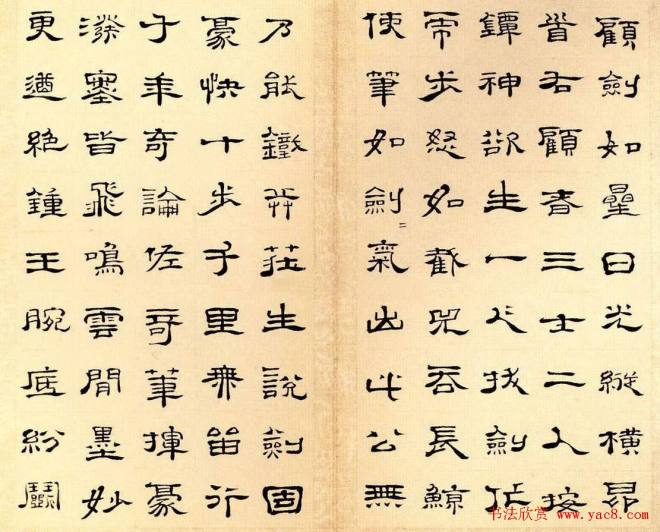 顧劍如曐日光縱橫昂
首右顧者三士二人按
鐔神欲生一人拔劍作
虎步怒如截兕吞長鯨
使筆如劍二氣出此公無
乃能鐵莊生說劍固
豪快十步千里無留行
子年奇論佐奇筆揮豪
塞皆飛鳴雲間墨妙
更遒絕鍾王腕底紛鬭
书法欣赏 www.yac8.com